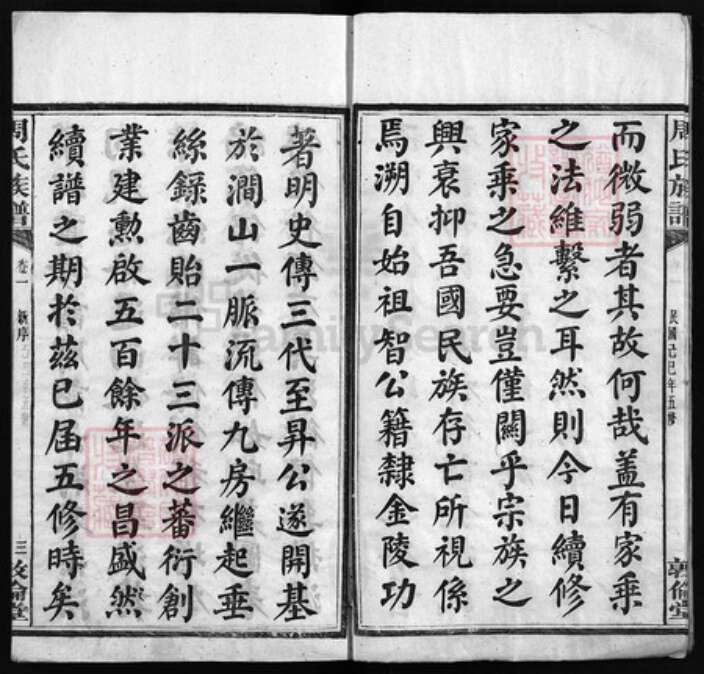 周氏族譜
民國己巳年五修
敦倫堂
而微弱者其故何哉蓋有家乘
之法維繫之耳然則今日續修
家乘之急要豈僅關乎宗族之
興衰抑吾國民族存亡所視係
焉溯自始祖智公籍隸金陵功
著明史傳三代至昇公遂開基
於澗山一脈流傳九房繼起垂
絲錄齒貽二十三派之蕃衍創
業建勳啟五百餘年之昌盛然
續譜之期於茲已屆五修時矣
周氏族譜
卷一
新序
三
敦倫堂
FamilySearch